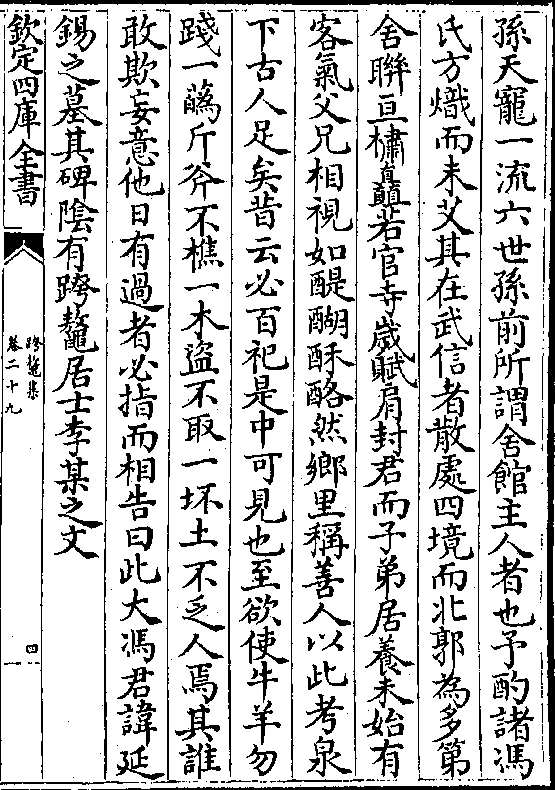 孫天寵一流六世孫前所謂舍館主人者也予酌諸馮
氏方熾而未艾其在武信者散處四境而北郭為多第
舍聨亘櫹矗若官寺嵗賦肩封君而子弟居養未始有
客氣父兄相視如醍醐酥酪然鄉里稱善人以此考泉
下古人足矣昔云必百祀是中可見也至欲使牛羊勿
踐一蘤斤斧不樵一木盜不取一坏土不乏人焉其誰
敢欺妄意他日有過者必指而相告曰此大馮君諱延
錫之墓其碑隂有跨鼇居士李某之文
欽定四庫全書
跨鼇集
卷二十九
四